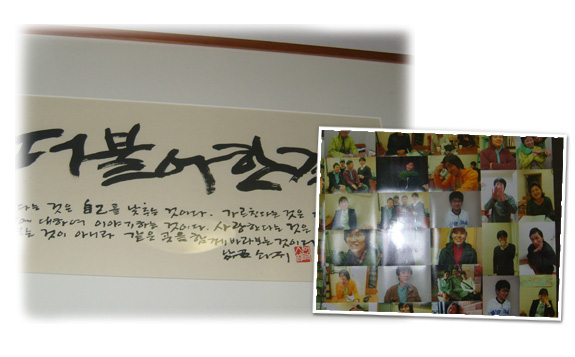 더불어한
다는 것은 自己를 낮추는 것이다. 가르친다는 것은
에 대하여 이야기하는 것이다. 사랑한다는 것은
는 것이 아니라 같은 곳을 함께 바라보는 것이다